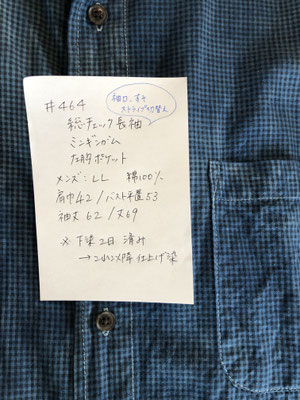 #464
袖口、すそ
ストライプ切替え
総チェック長袖
ミニギンガム
左胸ポケット
メンズ:LL 綿100%
肩巾42/バスト平置53
袖丈62/丈69
※下染2回済み
→これ以降仕上げ染